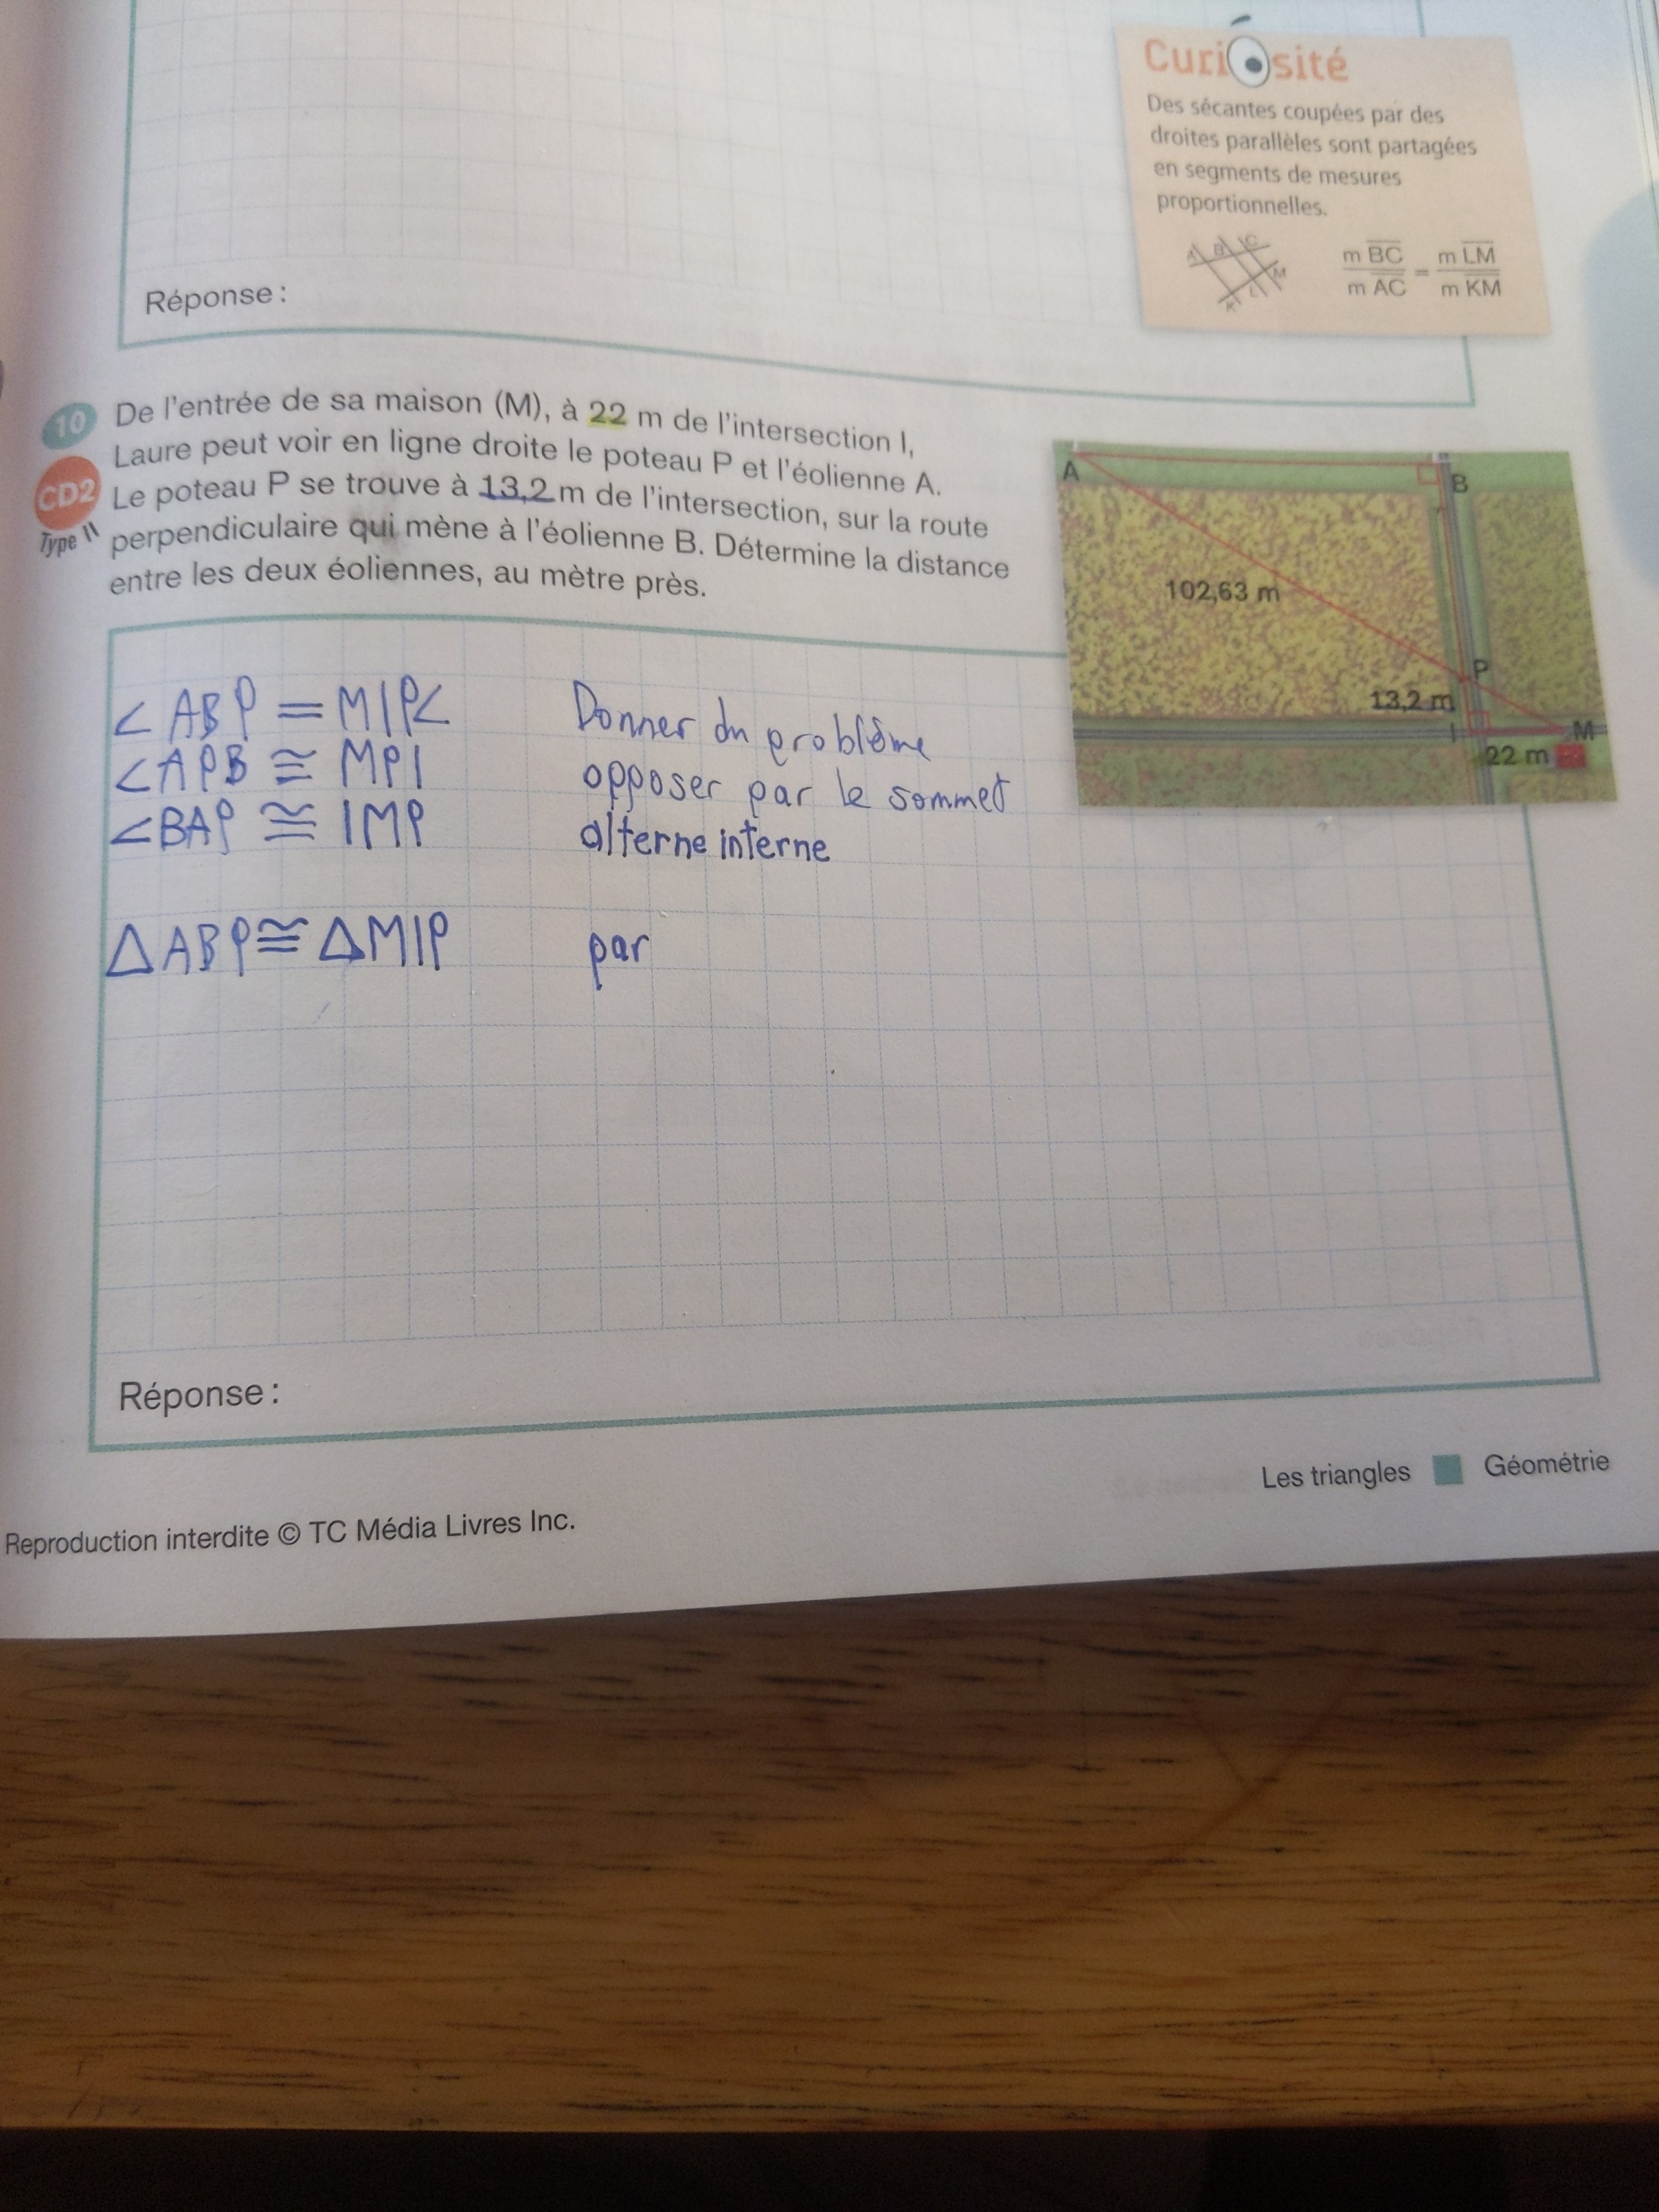 Curiosité
Des sécantes coupées par des
droites parallèles sont partagées
en segments de mesures
proportionnelles.
A B C
K L M
m BC / m AC = m LM / m KM
Réponse :
10 De l'entrée de sa maison (M), à 22 m de l'intersection I,
Laure peut voir en ligne droite le poteau P et l'éolienne A.
CD2 Le poteau P se trouve à 13,2 m de l'intersection, sur la route
Type II perpendiculaire qui mène à l'éolienne B. Détermine la distance
entre les deux éoliennes, au mètre près.
A
B
102,63 m
P
13,2 m
I
M
22 m
∠ABP = MIP∠ Donner du problème
∠APB ≅ MPI opposer par le sommet
∠BAP ≅ IMP alterne interne
ΔABP ≅ ΔMIP par
Réponse :
Les triangles Géométrie
Reproduction interdite © TC Média Livres Inc.